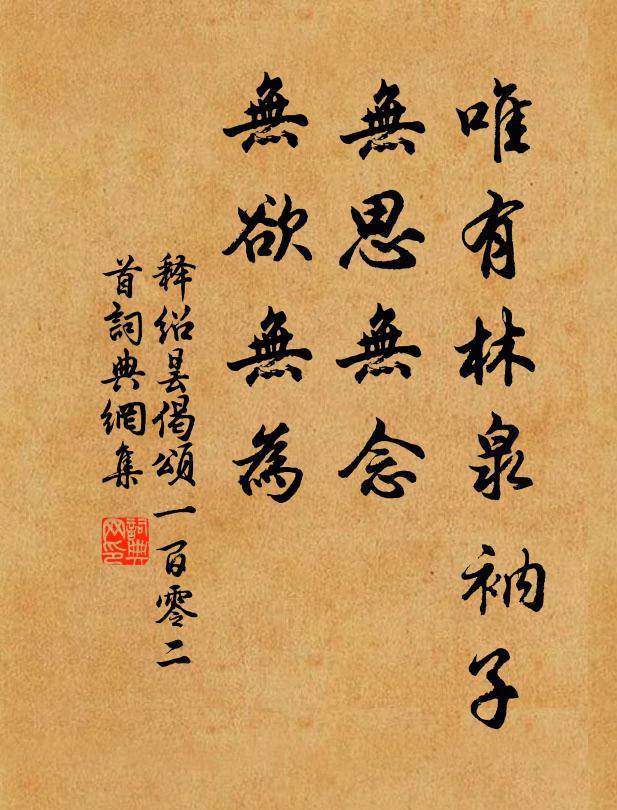 唯有林泉衲子
無思無念
無欲無為
释绍昙偈頌一百零二
首詞典網集
詞典网印